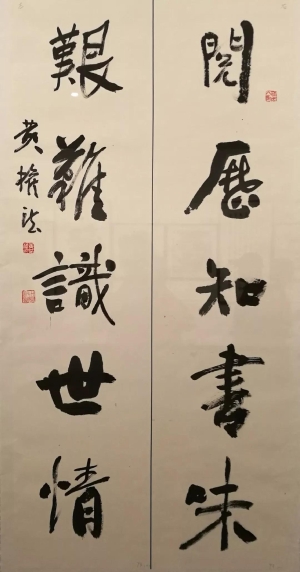 閱歷知書味
艱難識世情